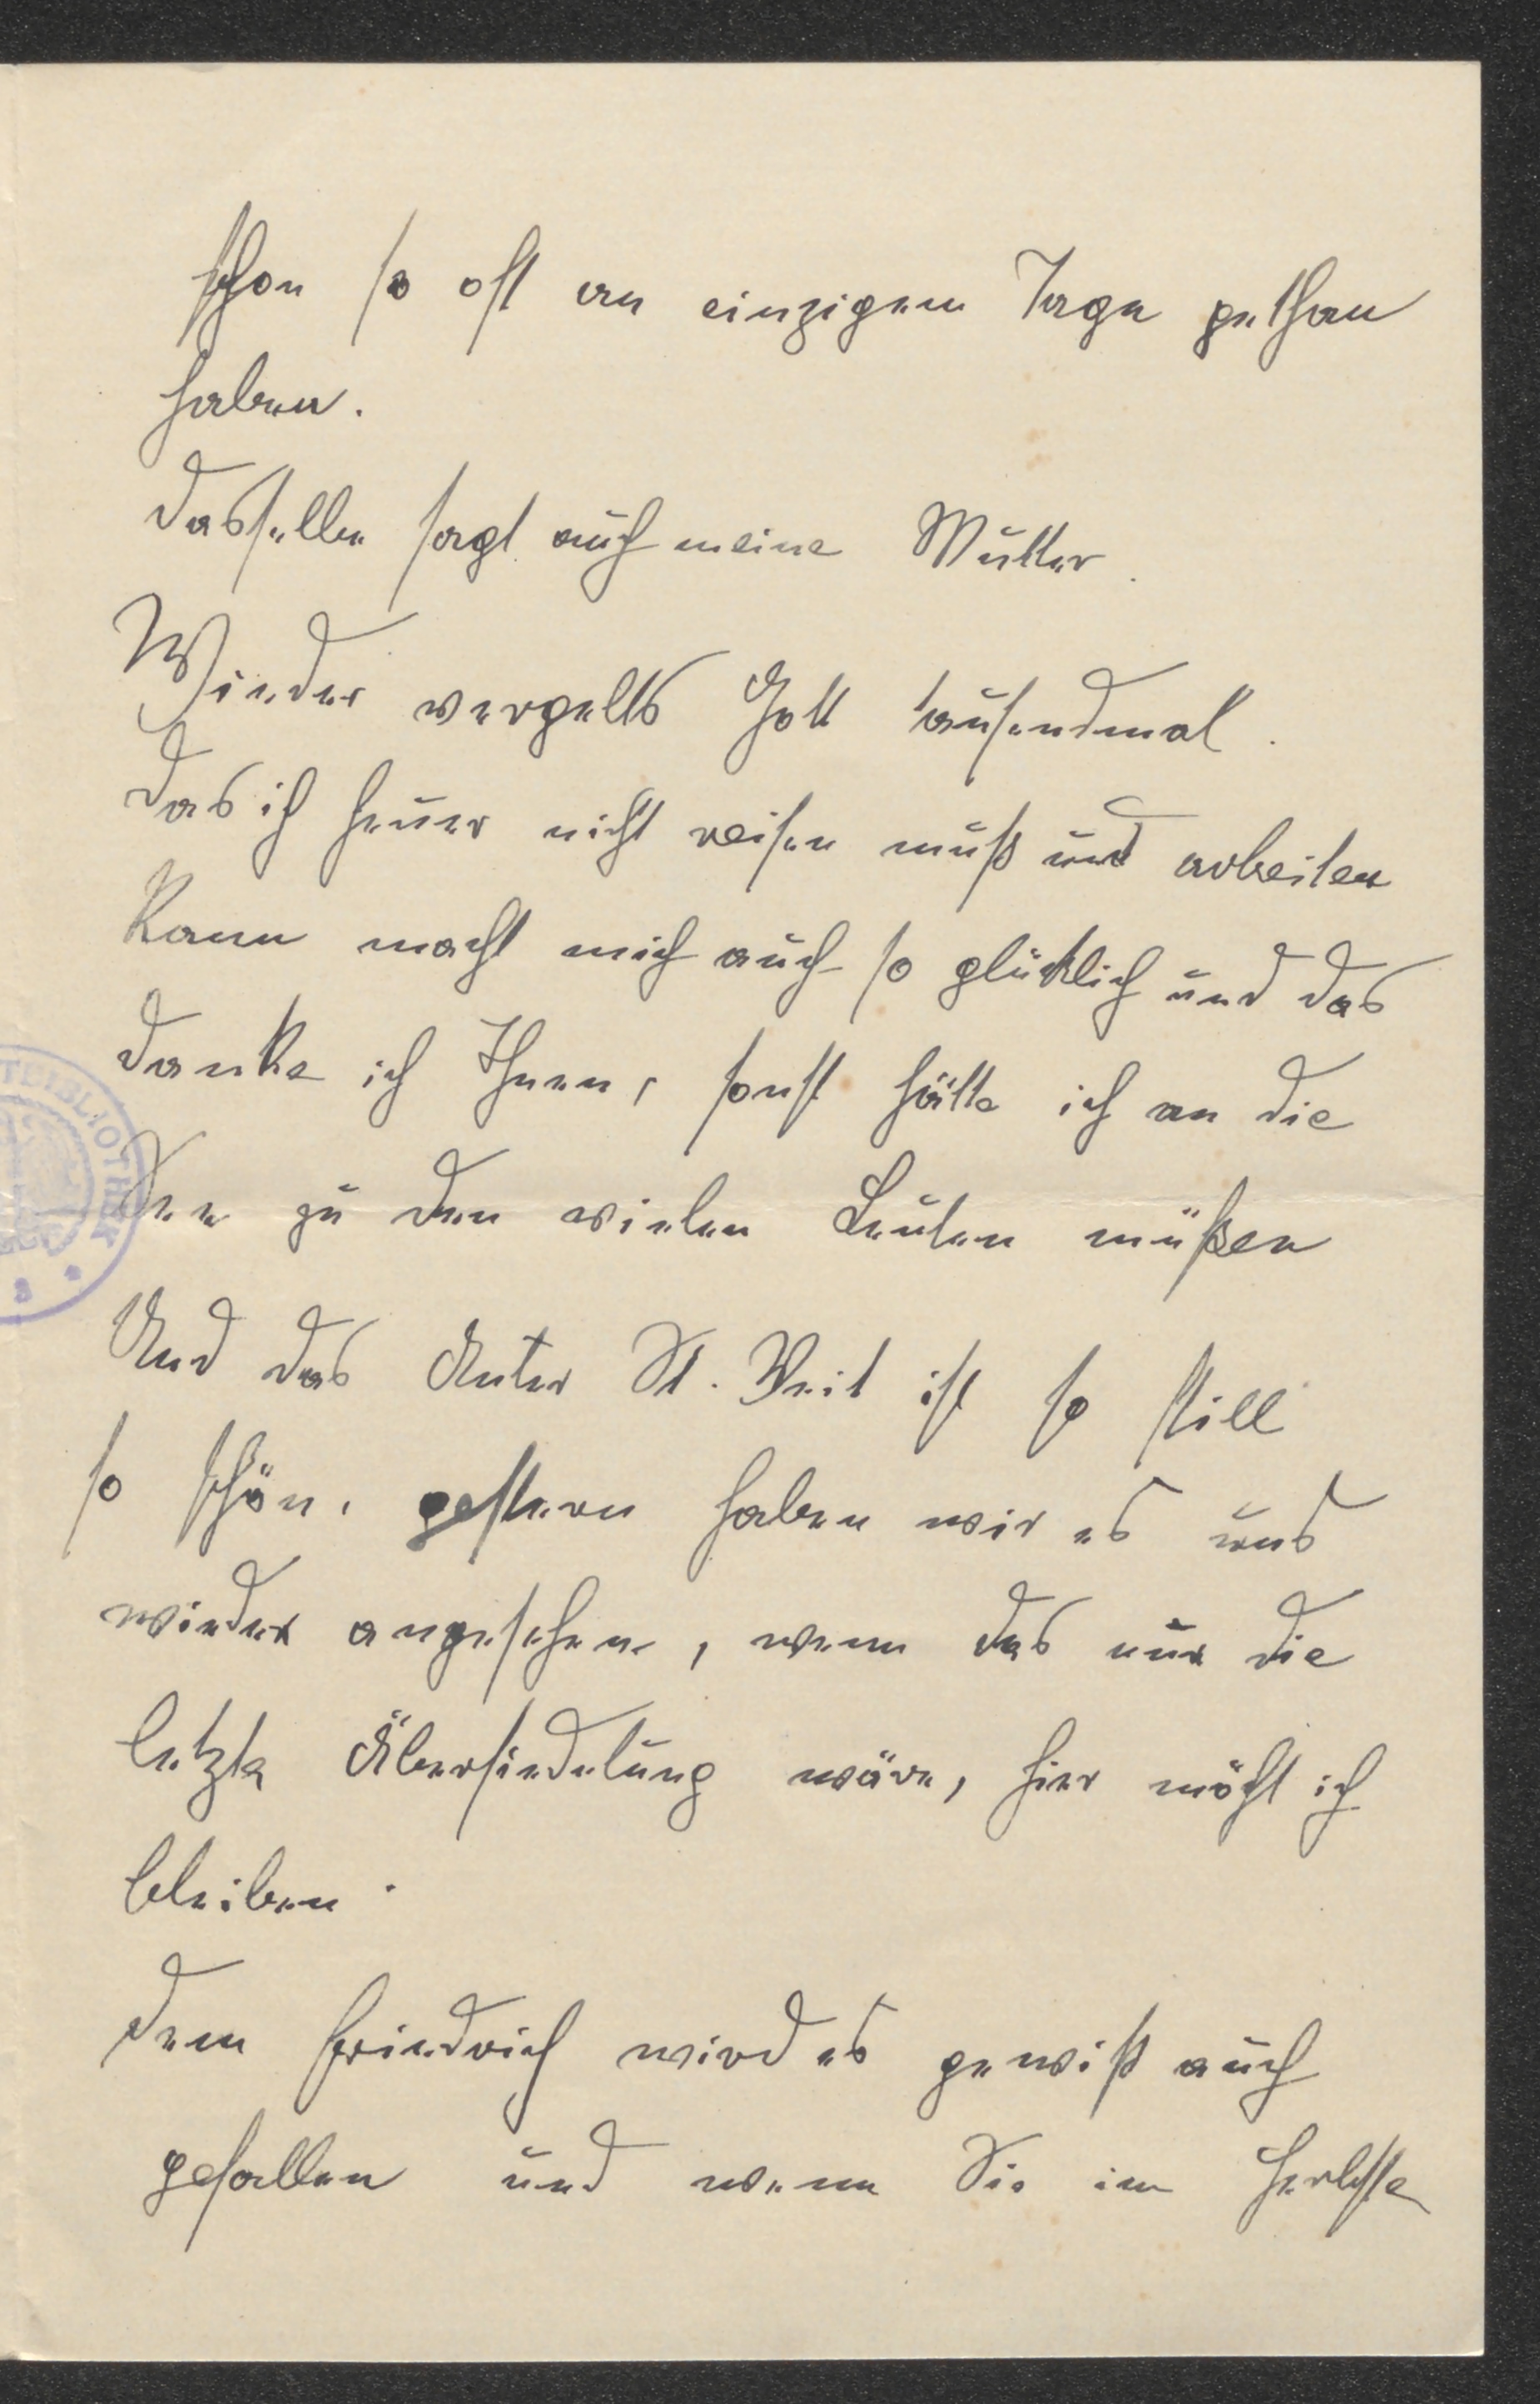 schon so oft an einzigem Tage gethan
haben.
dasselbe sagt auch meine Mutter.
Wieder vergelts Gott tausendmal.
das ich heuer nicht reisen muß und arbeiten
kann macht mich auch so glücklich und das
danke ich Ihnen, sonst hätte ich an die
See zu den vielen Leuten müßen
Und das Unter St. Veit ist so still
so schön. gestern haben wir es uns
wieder angesehen, wenn das nur die
letzte Übersiedelung wäre, hier möcht ich
bleiben.
dem Friedrich wird es gewiß auch
gefallen und wenn Sie im Herbste